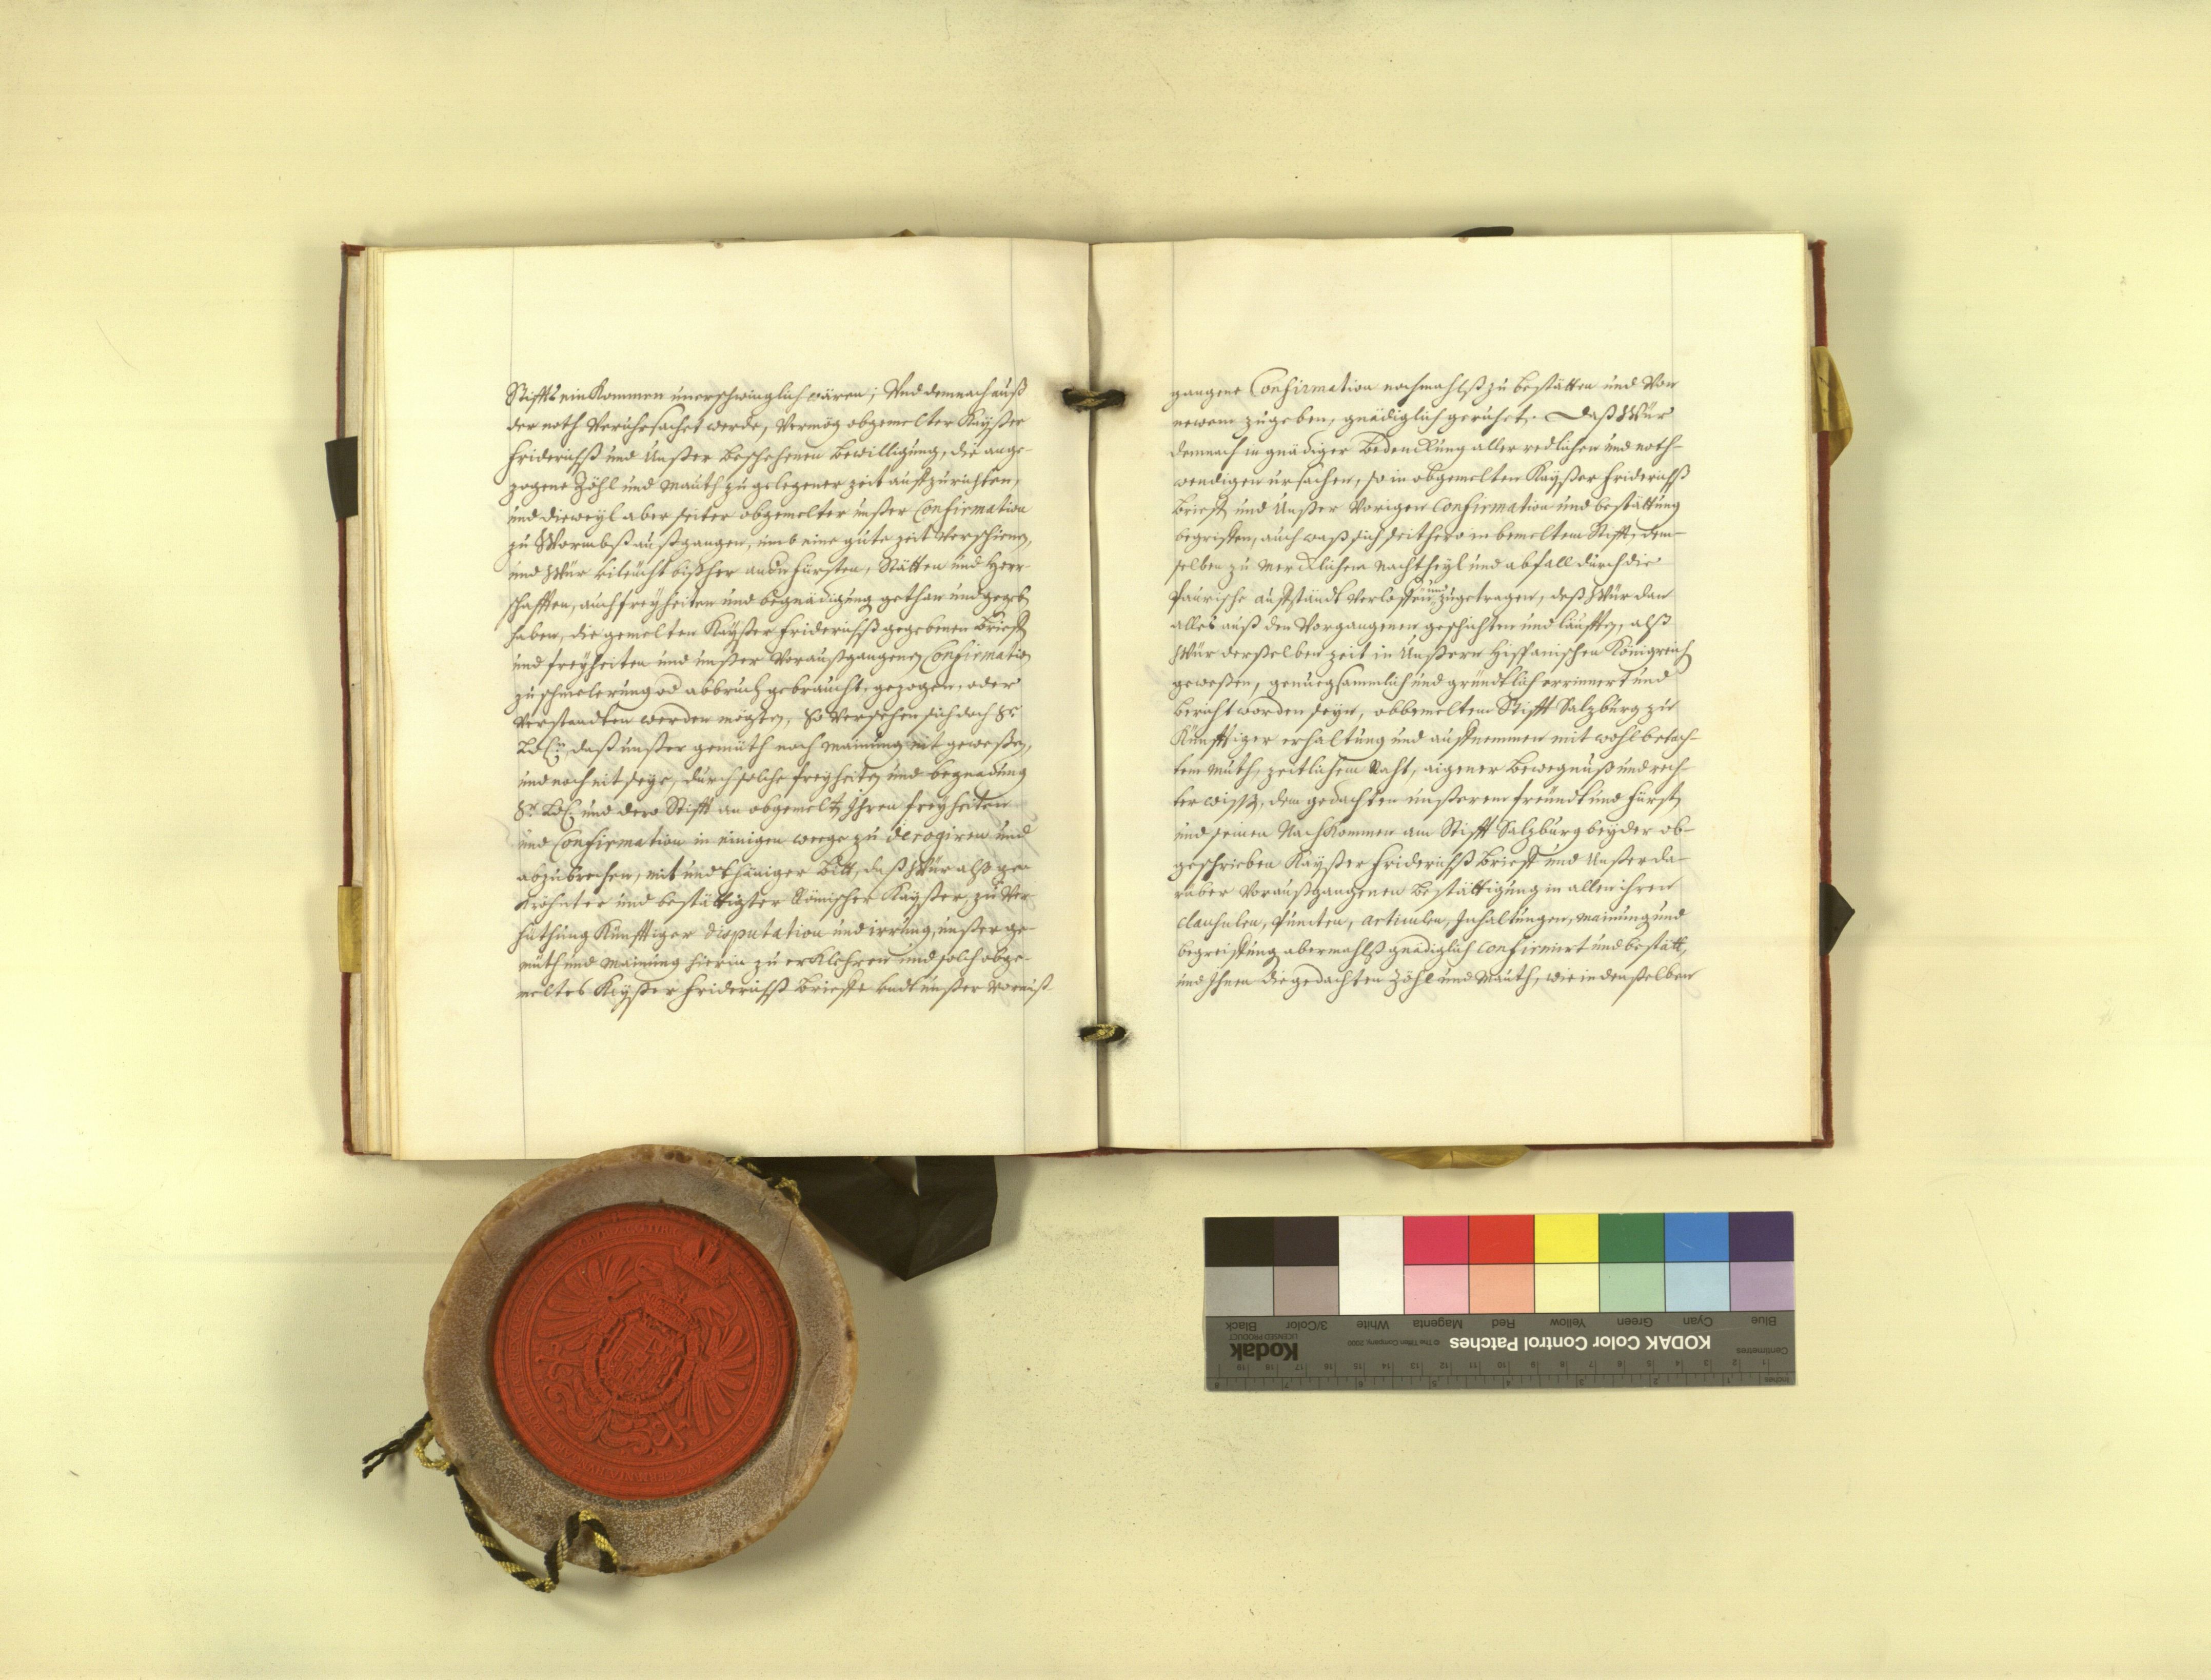 Stiffts einKommen unerschwinglich wären; Und demnach auß
der noth Veruhrsachet werde, Vermög obgemelter Kayßer
Friderichß und Unßer beschehenen bewilligung, die ange-
zogene Zöhl und Mauth zu gelegener zeit auffzurichten,
und dieweyl aber seiter obgemelter unßer Confirmation
zu Wormbß außgangen, umb eine gute zeit Verschienen,
und Wür vileücht bißher andern Fürsten, Stätten und Herr-
schafften, auch freyheiten und begnädigung gethan und gegeben
haben, die gemelten Kayßer Friderichß gegebenen Brieff,
und freyheiten und unßer Voraußgangenen Confirmation
zu schmelerung od abbruch gebraucht, gezogen, oder
Verstandten werden mögten, So Versehen sich doch Sr
Ldn, daß unßer gemüth noch mainung nit geweßen,
und noch nit seye, durch solche freyheiten und begnadung
Sr Ldn und dero Stifft an obgemelten Ihren freyheiten
und Confirmation in einigen weege zu derogiren und
abzubrechen, mit undthäniger bitt, daß Wür alß ge-
Kröhnter und bestättigter Römischer Kayßer, zu Ver-
hüthung Künfftiger disputation und irrung, unßer ge-
müth und mainung hierin zu erKlehren und solch obge-
meltes Kayßer Friderichß Brieffe undt unßer Vorauß
gangene Confirmation nochmahlß zu bestätten und Von
newem zugeben, gnädiglich geruhet. Daß Wür
demnach in gnädiger bedencKung aller redlichen und noth-
wendigen ursachen, so in obgemelten Kayßer Friderichß
Brieff und Unßer Vorigen Confirmation und bestättung
begriffen, auch waß sich seithero in bemeltem Stifft, dem-
selben zu mercKlichem nachtheyl und abfall durch die
Paurische auffständt Verloffen und zugetragen, deß Wür dan
alles auß den Vorgangenen geschichten und läufften, alß
Wür derselben zeit in Unßern Hispanischen Königreich
geweßen, genuegsammlich und gründtlich errinnert und
bericht worden seyn, obbemeltem Stifft Salzburg zu
Künfftiger erhaltung und auffnemmen mit wohlbedach-
tem muth, zeitlichem Raht, aigener bewegnuß und rech-
ter wissen, dem gedachten unßerem freündt und Fürsten
und seinen NachKommen am Stifft Salzburg beyder ob-
geschrieben Kayßer Friderichß Brieff und Unßer da-
rüber Voraußgangenen bestättigung in allen ihren
Clausulen, Puncten, articulen, Inhaltungen, mainung und
begreiffung abermahlß gnädiglich confirmirt und bestätt,
und Ihnen die gedachten Zöhl und Mauth, wie in denselben
KODAK Color Control Patches
Kodak
LICENSED PRODUCT
© The Tiffen Company, 2000
Blue Cyan Green Yellow Red Magenta White 3/Color Black
Centimetres
Inches